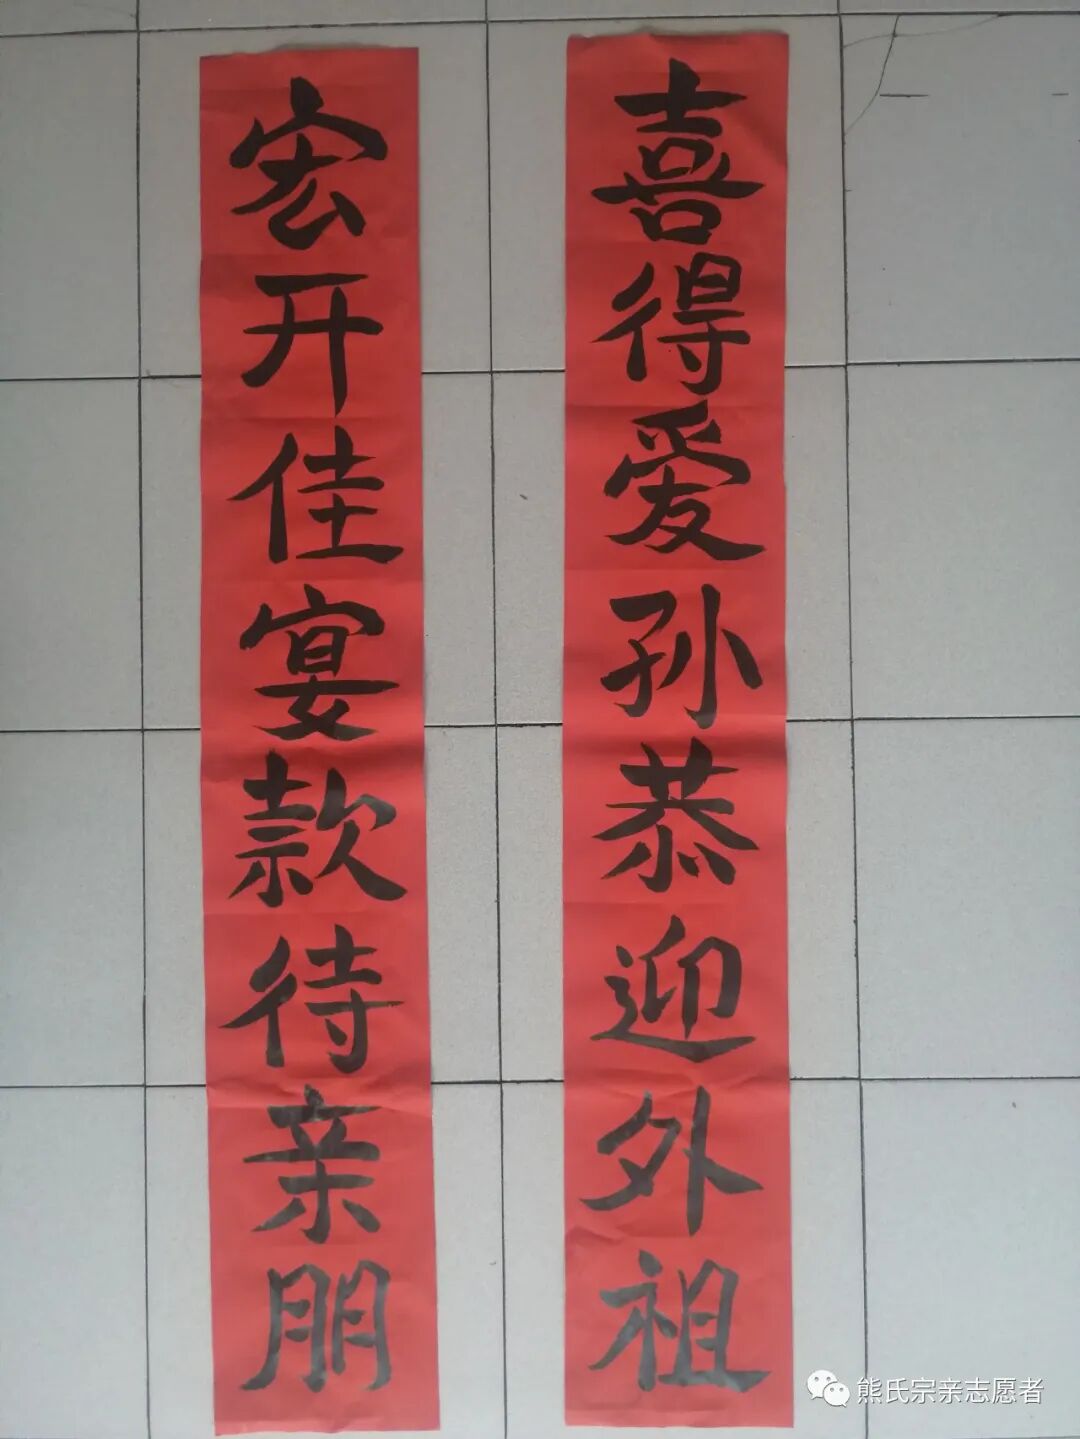 喜得爱孙恭迎外祖
宏开佳宴款待亲朋
熊氏宗亲志愿者